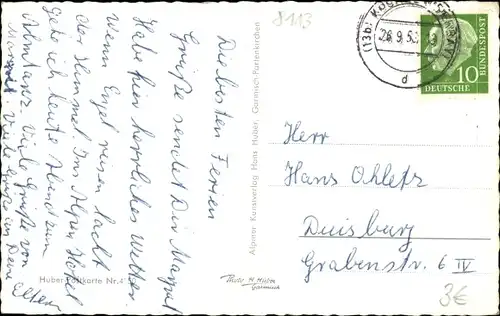 8113
(13b) K
26.9.5
d
10
DEUTSCHE
BUNDESPOST
Die besten Ferien
Grüße sendet Dir Margat
Habe hier herrliches Wetter
Wenn Engel reisen lacht
der Himmel. Ins Alpen Hotel
geh ich heute Abend zum
Viele Grüße von
Viele Grüße an Deine
Eltern
Alpiner Kunstverlag Hans Huber, Garmisch-Partenkirchen
Huber-Postkarte Nr. 4
Photo H. Huber
Garmisch
Herr
Hans Ohlefs
Duisburg
Grabenstr. 6 IV
3€